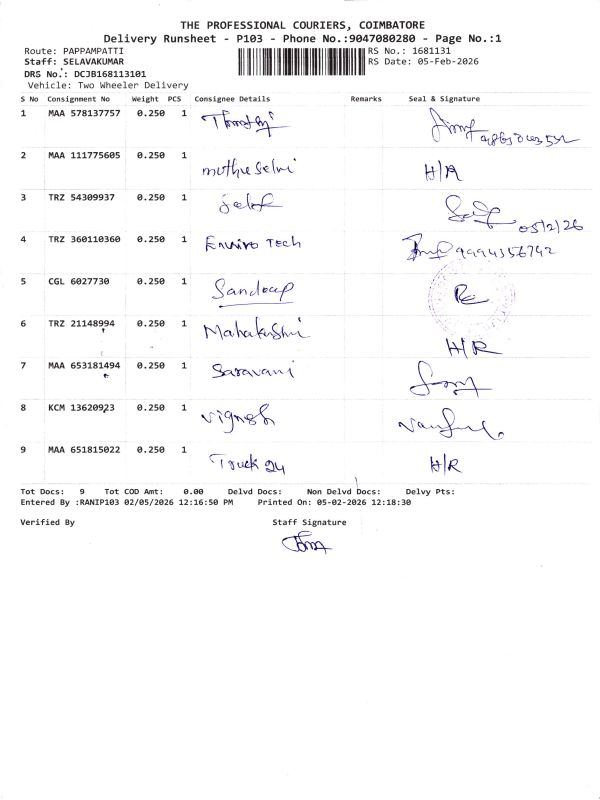 THE PROFESSIONAL COURIERS, COIMBATORE
Delivery Runsheet - P103 - Phone No.:9047080280 - Page No.:1
Route: PAPPAMPATTI RS No.: 1681131
Staff: SELAVAKUMAR RS Date: 05-Feb-2026
DRS No.: DCJB168113101
Vehicle: Two Wheeler Delivery
S No Consignment No Weight PCS Consignee Details Remarks Seal & Signature
1 MAA 578137757 0.250 1
2 MAA 111775605 0.250 1 muthu selvi H/R
3 TRZ 54309937 0.250 1
05/2/26
4 TRZ 360110360 0.250 1 Enviro Tech 9994356742
5 CGL 6027730 0.250 1 Sandeep
6 TRZ 21148994 0.250 1 H/R
7 MAA 653181494 0.250 1 Saravani
8 KCM 13620923 0.250 1 Vignesh
9 MAA 651815022 0.250 1 Truck 24 H/R
Tot Docs: 9 Tot COD Amt: 0.00 Delvd Docs: Non Delvd Docs: Delvy Pts:
Entered By :RANIP103 02/05/2026 12:16:50 PM Printed On: 05-02-2026 12:18:30
Verified By Staff Signature